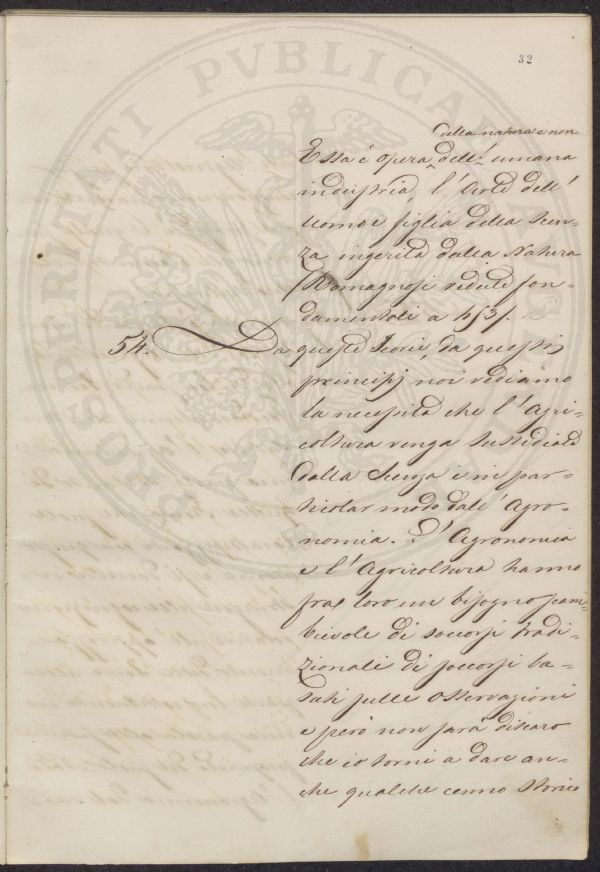 32
della natura e non
Essa è opera dell' umana
industria, l' Arte dell'
uomo è figlia della Scien-
za ingerita dalla Natura
(Romagnosi vedute fon-
damentali a
54. Da queste teorie, da questi
principj noi vediamo
la necessità che l' Agri-
coltura venga sussidiata
dalla Scienza e in par-
ticolar modo dall' Agro-
nomia. L' Agronomia
e l' Agricoltura hanno
fra loro un bisogno scam-
bievole di soccorsi tradi-
zionali di soccorsi ba-
sati sulle Osservazioni
e però non sarà discaro
che io torni a dare an-
che qualche cenno Storico
PROSPERITATI PVBLICAE AVGENDAE